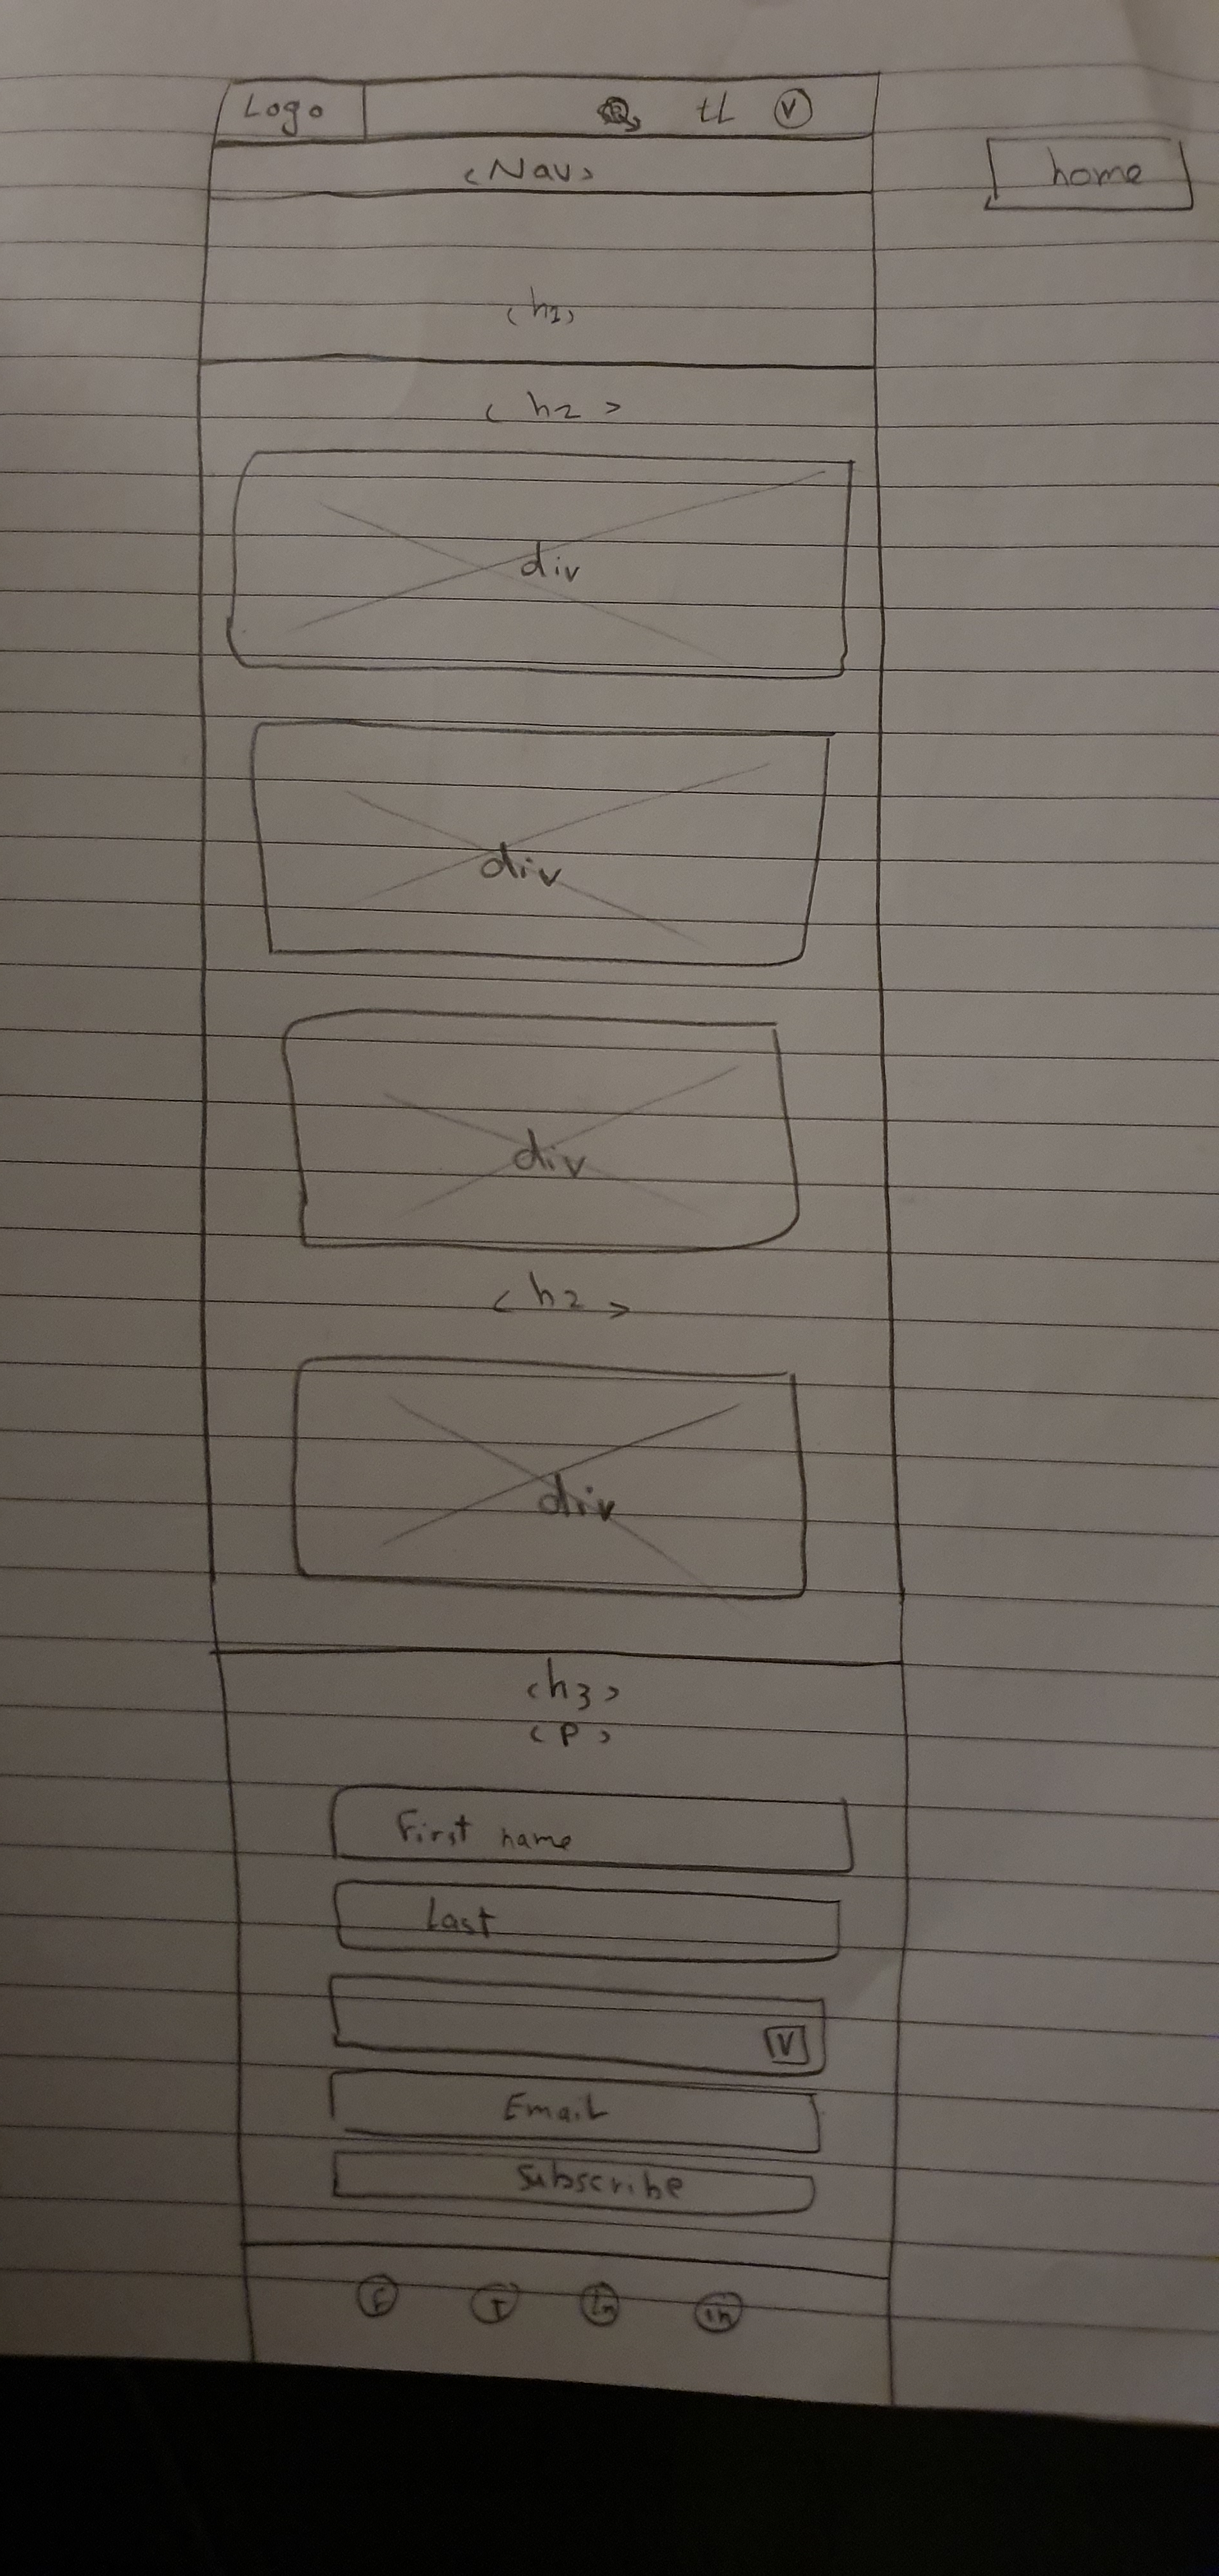 Logo tL V
<Nav>
home
<h1>
<h2>
div
div
div
<h2>
div
<h3>
<P>
First name
Last
V
Email
Subscribe
F T In in